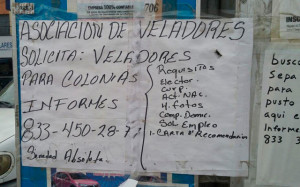 706
ASOCIACION DE VELADORES
SOLICITA: VELADORES
PARA COLONIAS
INFORMES
833-450-28-7
Seriedad Absoluta.
Requisitos
Elector.
Curp.
Act. NAC.
4. fotos
Comp. Domic.
Sol Empleo
1- CARTA D' Recomendacion
busc
Sepa
para
pusto
aqui e
Informe
833